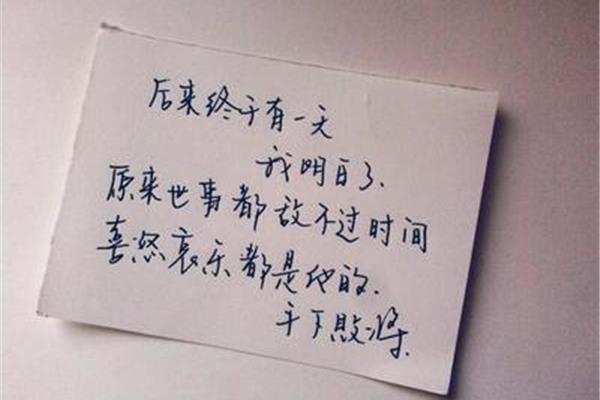 后来终于有一天
我明白了.
原来世事都敌不过时间
喜怒哀乐都是他的.
手下败将.